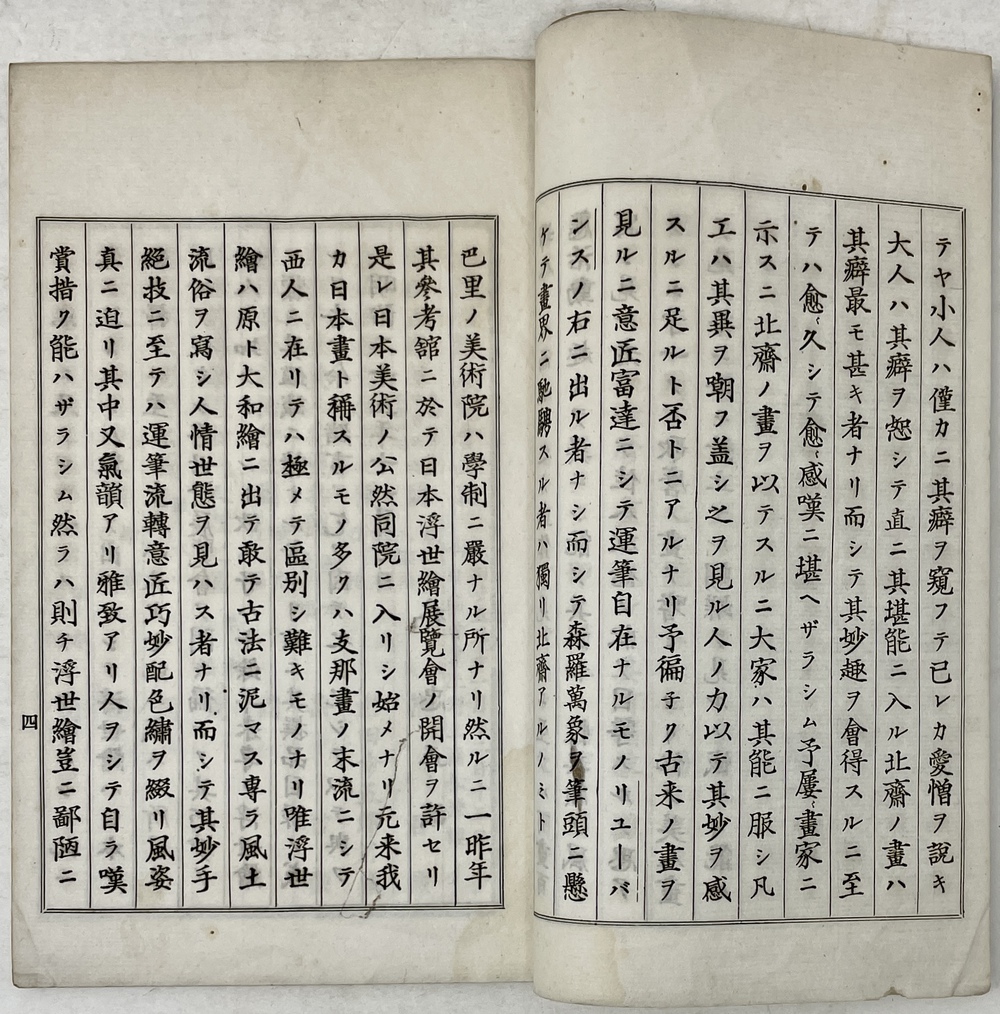 テヤ小人ハ僅カニ其癖ヲ窺フテ已レカ愛憎ヲ說キ
大人ハ其癖ヲ恕シテ直ニ其堪能ニ入ル北齋ノ畫ハ
其癖最モ甚キ者ナリ而シテ其妙趣ヲ會得スルニ至
テハ愈〻久シテ愈〻感嘆ニ堪ヘザラシム予屢〻畫家ニ
示スニ北齋ノ畫ヲ以テスルニ大家ハ其能ニ服シ凡
工ハ其異ヲ嘲フ盖シ之ヲ見ル人ノ力以テ其妙ヲ感
スルニ足ルト否トニアルナリ予徧子ク古来ノ畫ヲ
見ルニ意匠富達ニシテ運筆自在ナルモノリユーバ
ンスノ右ニ出ル者ナシ而シテ森羅萬象ヲ筆頭ニ懸
ケテ畫界ニ馳騁スル者ハ獨リ北齋アルノミト
巴里ノ美術院ハ學制ニ嚴ナル所ナリ然ルニ一昨年
其參考舘ニ於テ日本浮世繪展覽會ノ開會ヲ許セリ
是レ日本美術ノ公然同院ニ入リシ始メナリ元来我
カ日本畫ト稱スルモノ多クハ支那畫ノ末流ニシテ
西人ニ在リテハ極メテ區別シ難キモノナリ唯浮世
繪ハ原ト大和繪ニ出テ敢テ古法ニ泥マス専ラ風土
流俗ヲ寫シ人情世態ヲ見ハス者ナリ而シテ其妙手
絕技ニ至テハ運筆流轉意匠巧妙配色繡ヲ綴リ風姿
真ニ迫リ其中又氣韻アリ雅致アリ人ヲシテ自ラ嘆
賞措ク能ハザラシム然ラハ則チ浮世繪豈ニ鄙陋ニ
四